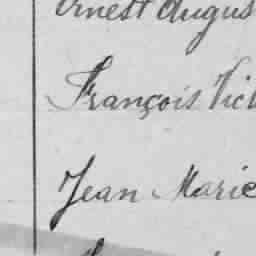 Ernest Augus
François Vict
Jean Marie